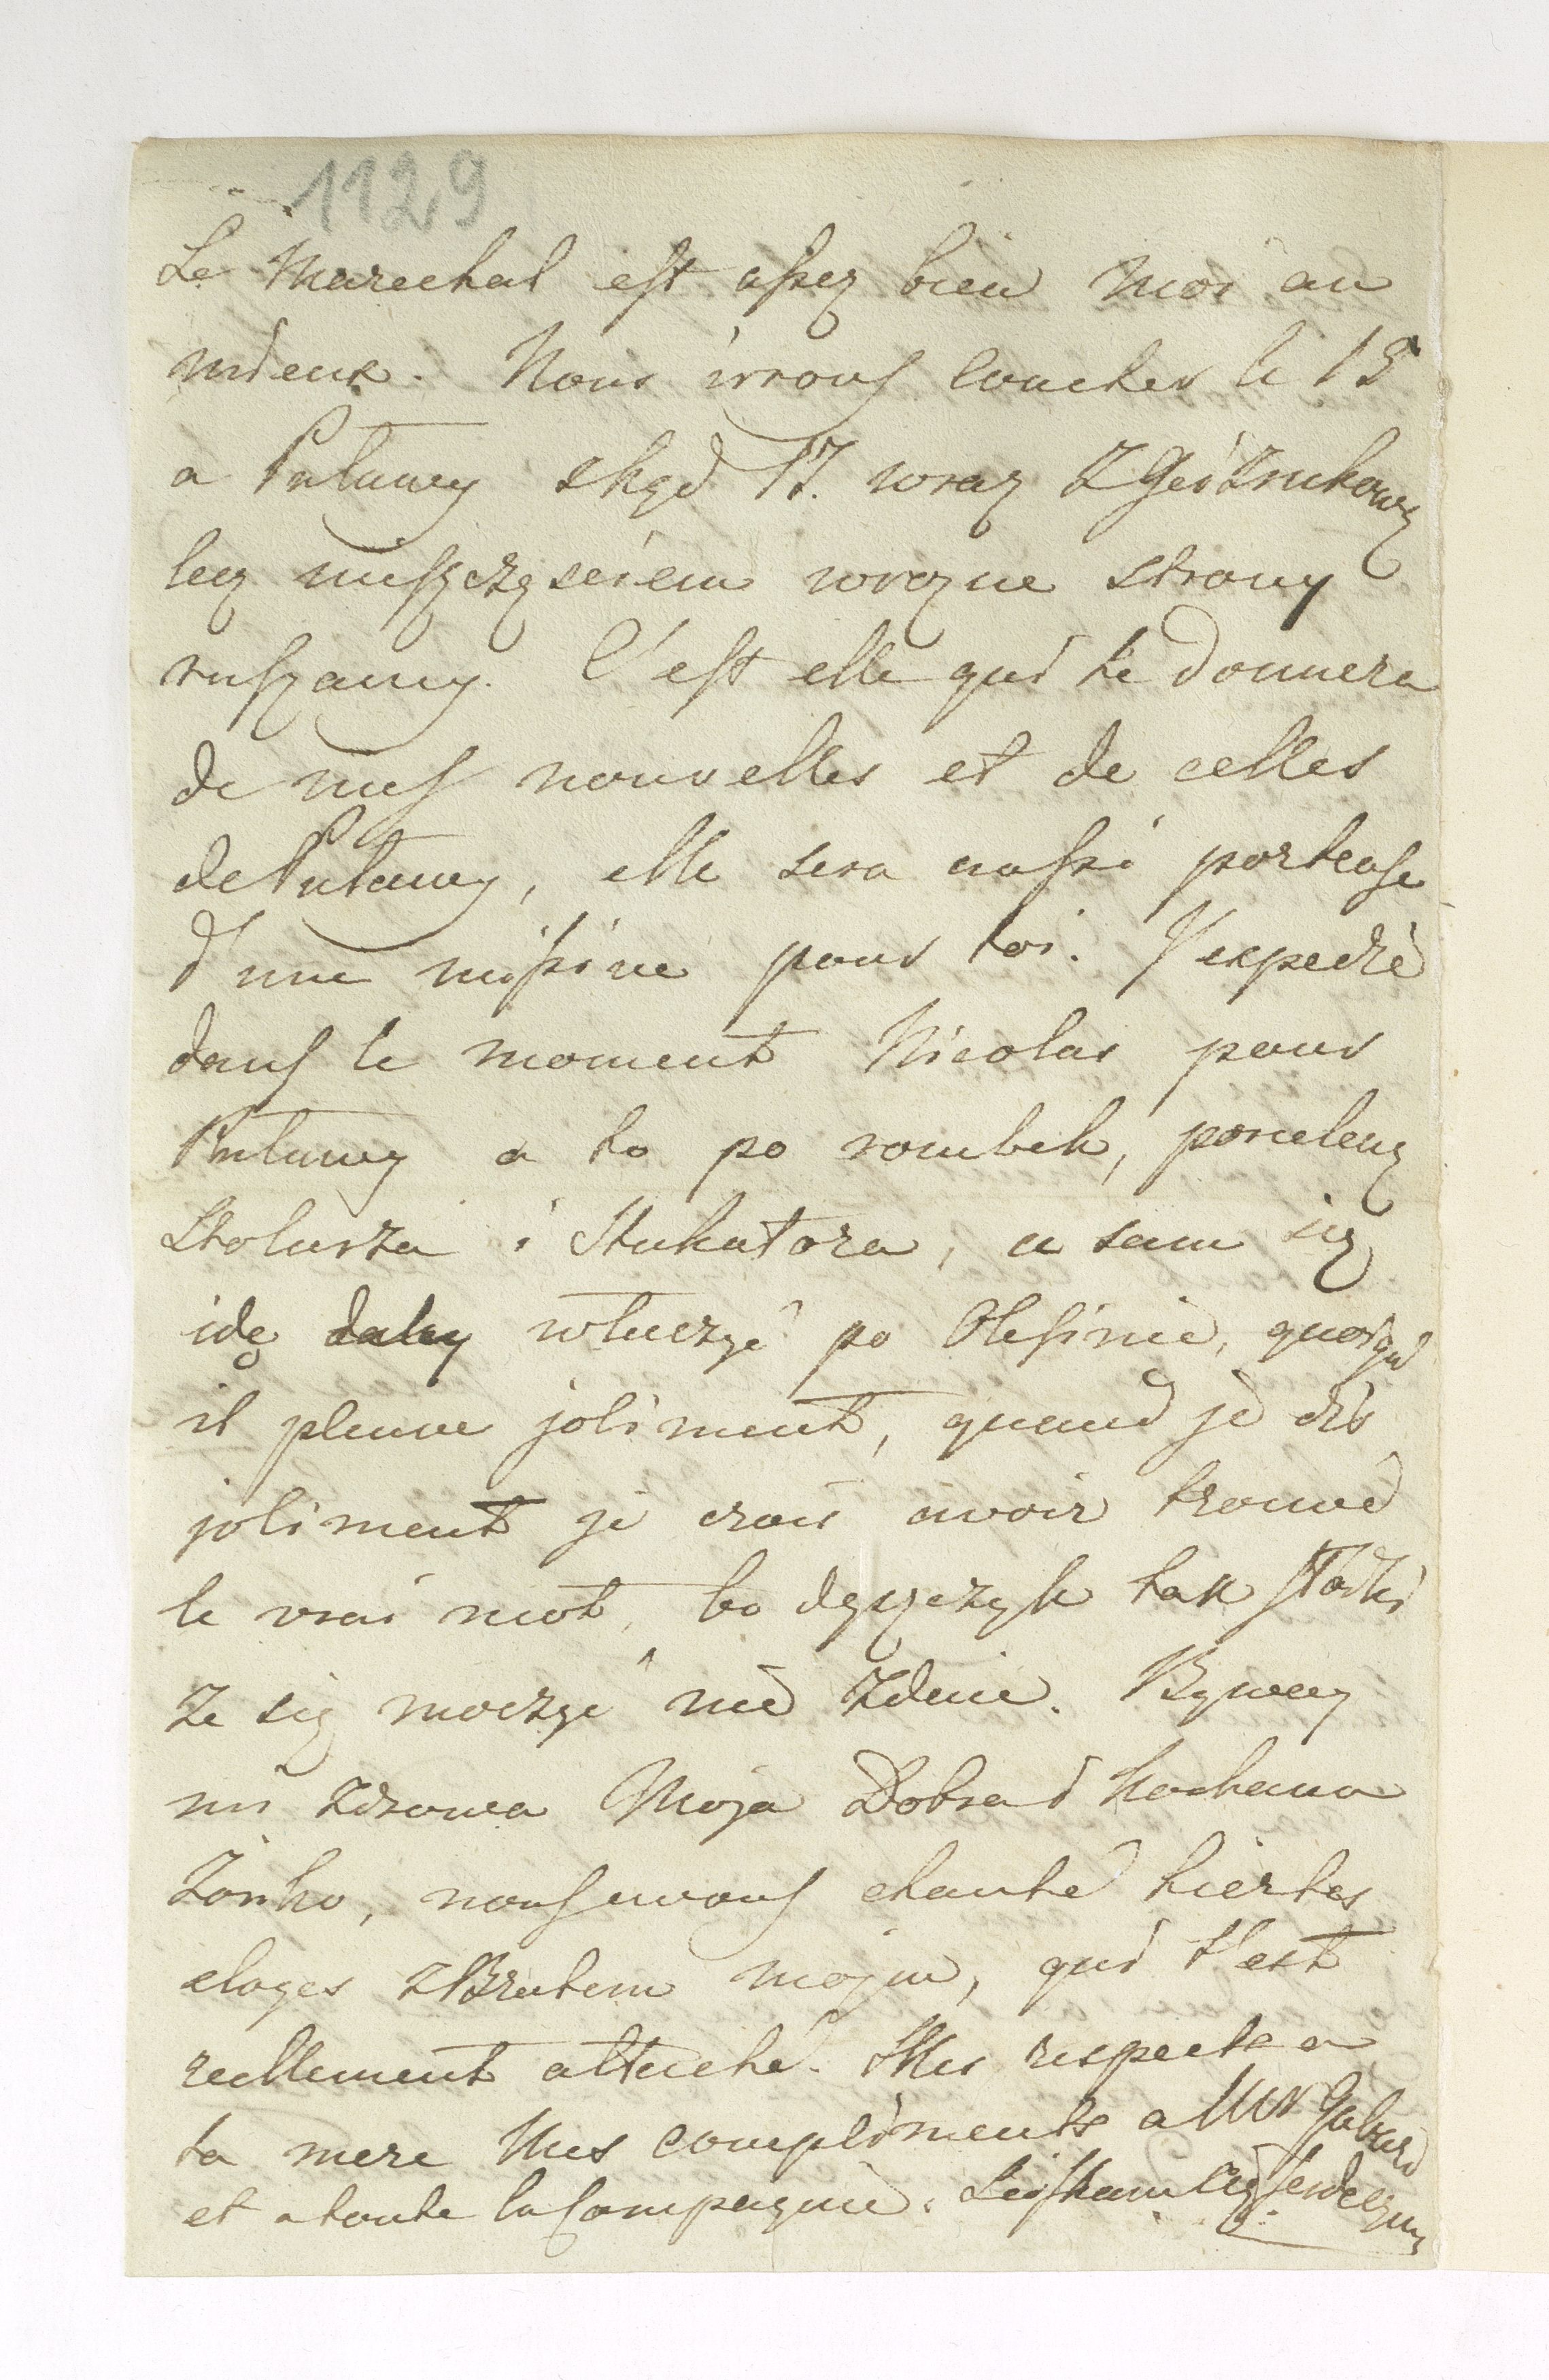 1129
Le Marechal est assez bien moi au
mieux. Nous irrons coucher le 15
a Puławy skąd 17. wraz z Geiżrukową
lecz nieszczęściem w rożne strony
ruszamy. C'est elle qui te donnera
de mes nouvelles et de celles
de Puławy, elle sera aussi porteuse
d'une missive pour toi. J'expedie
dans le moment Nicolas pour
Puławy a to po rombek, porcelenę
Stolarza i Stukatora, a sam się
idę daley włuczyć po Olesinie, quoiqu'
il pleuve joliment, quand je dis
joliment je crois avoir trouvé
le vrai mot, bo dyszczyk tak słodki
że się moczyć nie zdaie. Byway
mi zdrowa Moja Dobra i kochana
Zonko, nous avons chanté hier tes
eloges z Bratem mojm, qui t'est
reellement attaché. Mes respects a
ta mere Mes compliments a Mr
et a toute la Compagnie. Sciskam Cię serdecznie